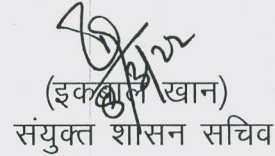 (इकबाल खान)
संयुक्त शासन सचिव